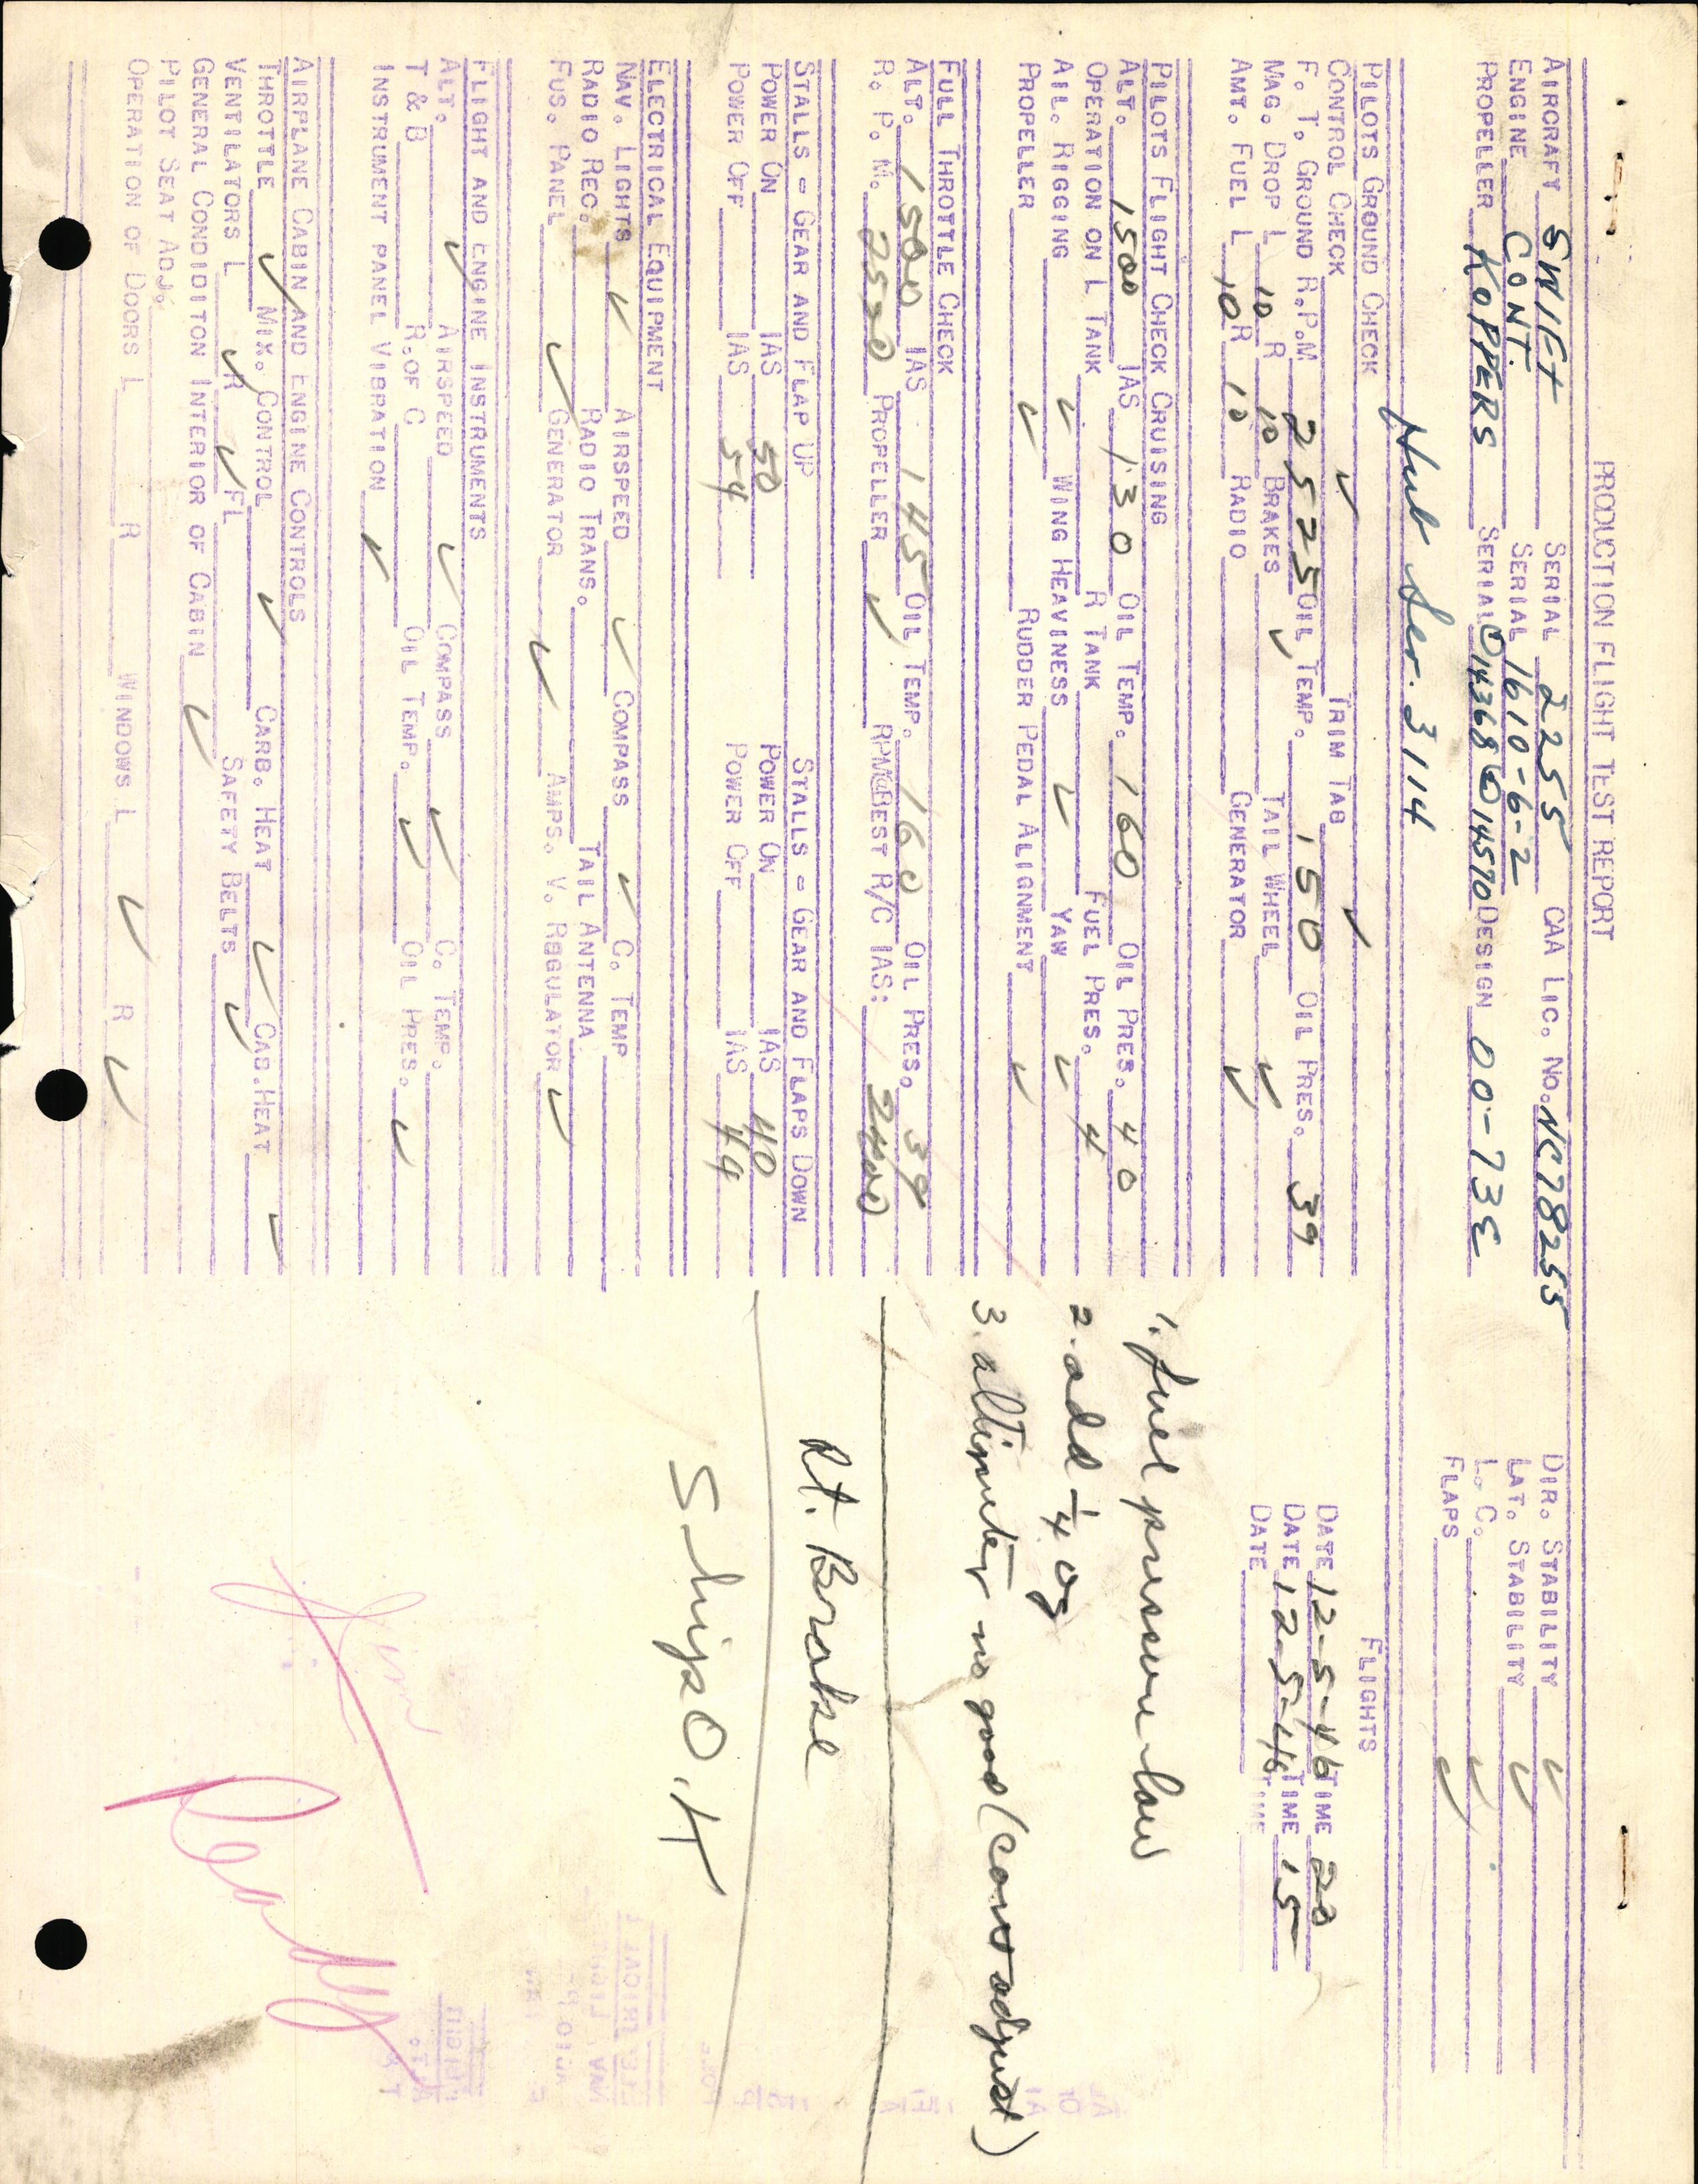 PRODUCTION FLIGHT TEST REPORT
AIRCRAFT SWIFT SERIAL 2255 CAA LIC. NO. NC78255 DIR. STABILITY ✓
ENGINE CONT. SERIAL 1610-6-2 LAT. STABILITY ✓
PROPELLER KOPPERS SERIAL ①14368 ②14570 DESIGN 00-73E L. C. ✓
FLAPS ✓
Hub Ser. 3114
PILOTS GROUND CHECK FLIGHTS
CONTROL CHECK ✓ TRIM TAB ✓
F. T. GROUND R.P.M 2525 OIL TEMP. 150 OIL PRES. 39 DATE 12-5-46 TIME 20
MAG. DROP L 10 R 10 BRAKES ✓ TAIL WHEEL ✓ DATE 12-5-46 TIME 15
AMT. FUEL L 10 R 10 RADIO GENERATOR ✓ DATE TIME
PILOTS FLIGHT CHECK CRUISING
ALT. 1500 IAS 130 OIL TEMP. 160 OIL PRES. 40
OPERATION ON L TANK ✓ R TANK ✓ FUEL PRES. 4
AIL. RIGGING ✓ WING HEAVINESS ✓ YAW ✓
PROPELLER ✓ RUDDER PEDAL ALIGNMENT ✓
1. fuel pressure low
2. add 1/4 oz
3. altimeter no good (cant adjust)
FULL THROTTLE CHECK
ALT. 1500 IAS 145 OIL TEMP. 160 OIL PRES. 39
R. P. M. 2520 PROPELLER ✓ RPM@BEST R/C IAS: 2400
Rt. Brake
STALLS = GEAR AND FLAP UP STALLS = GEAR AND FLAPS DOWN
POWER ON IAS 50 POWER ON IAS 40
POWER OFF IAS 54 POWER OFF IAS 44
Ship O.K
ELECTRICAL EQUIPMENT
NAV. LIGHTS ✓ AIRSPEED ✓ COMPASS ✓ C. TEMP
RADIO REC. RADIO TRANS. TAIL ANTENNA
FUS. PANEL ✓ GENERATOR ✓ AMPS. V. REGULATOR ✓
FLIGHT AND ENGINE INSTRUMENTS
ALT. ✓ AIRSPEED ✓ COMPASS ✓ C. TEMP.
T & B R. OF C OIL TEMP. ✓ OIL PRES. ✓
INSTRUMENT PANEL VIBRATION ✓
AIRPLANE CABIN AND ENGINE CONTROLS
THROTTLE ✓ MIX. CONTROL ✓ CARB. HEAT ✓ CAB. HEAT ✓
VENTILATORS L ✓ R ✓ FL SAFETY BELTS ✓
GENERAL CONDIDITON INTERIOR OF CABIN ✓
PILOT SEAT ADJ.
OPERATION OF DOORS L R WINDOWS L ✓ R ✓